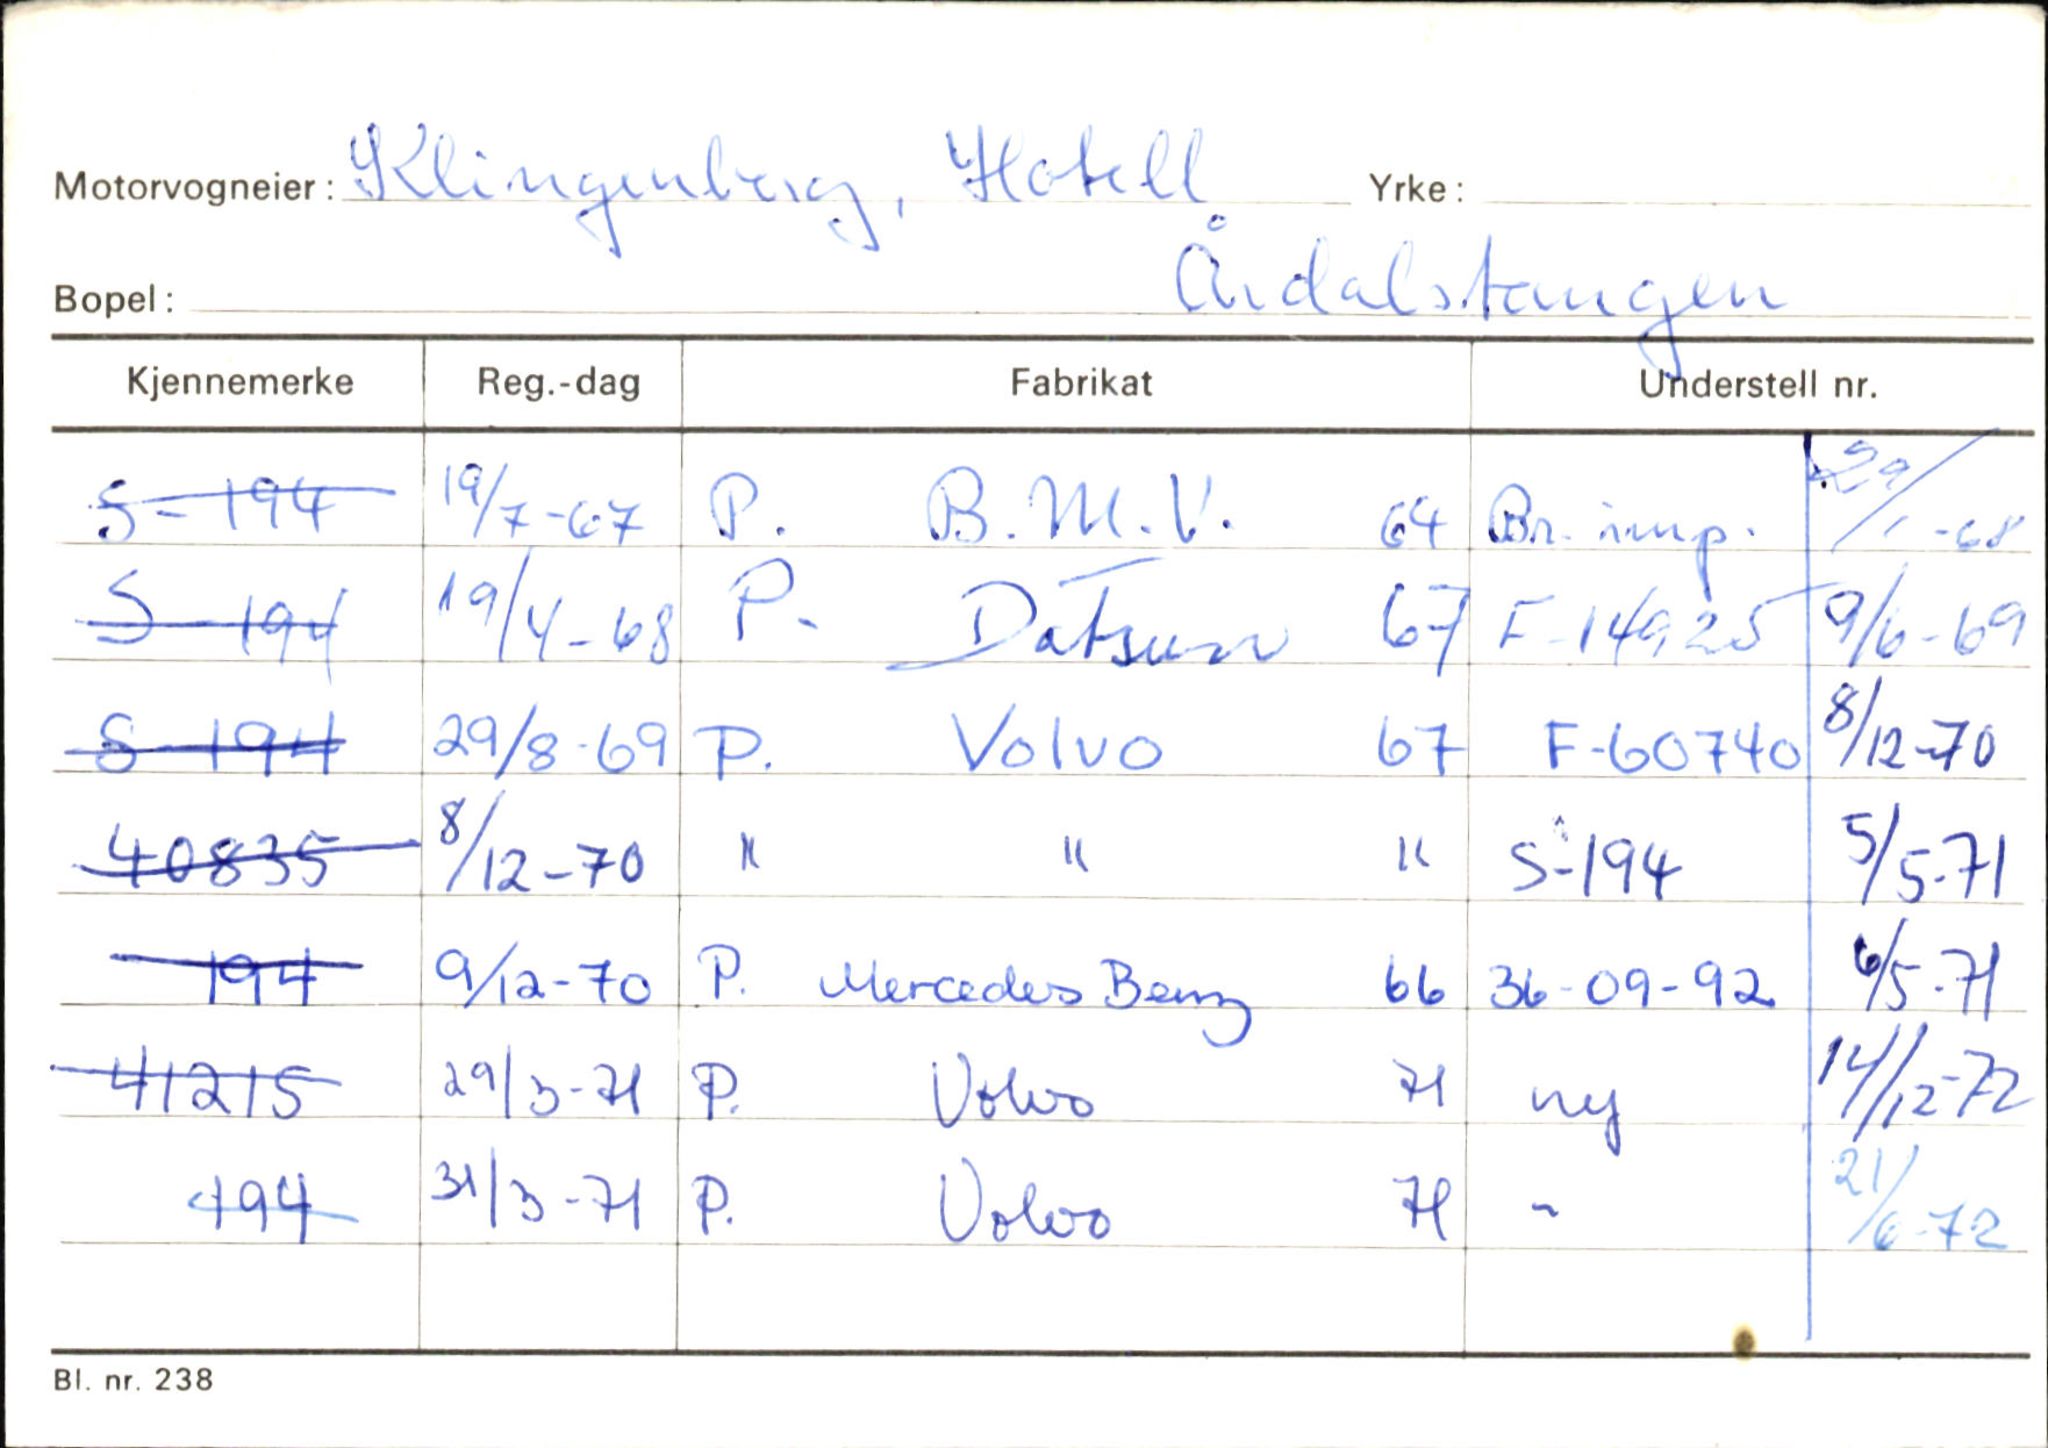 Motorvogneier: Klingenberg, Hotell Yrke:
Bopel: Årdalstangen
Kjennemerke Reg.-dag Fabrikat Understell nr.
S-194 19/7-67 P. B.M.V. 64 Br. imp. 29/1-68
S-194 19/4-68 P. Datsun 67 F-14925 9/6-69
S-194 29/8-69 P. Volvo 67 F-60740 8/12-70
40835 8/12-70 " " " S-194 5/5-71
194 9/12-70 P. Mercedes Benz 66 36-09-92 6/5-71
41215 29/3-71 P. Volvo 71 ny 14/12-72
194 31/3-71 P. Volvo 71 - 21/6-72
Bl. nr. 238